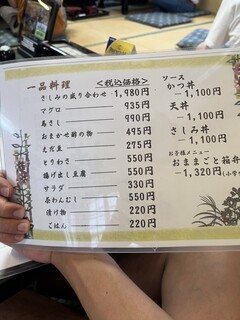 一品料理 <税込価格>
さしみの盛り合わせ-1,980円
マグロ 935円
馬さし 990円
おまかせ酢の物 495円
えだ豆 275円
とりわさ 550円
揚げ出し豆腐 550円
サラダ 330円
茶わんむし 550円
漬け物 220円
ごはん 220円
ソース
かつ丼
-1,100円
天丼
-1,100円
さしみ丼
-1,100円
お子様メニュー
おままごと箱弁
-1,320円(小学